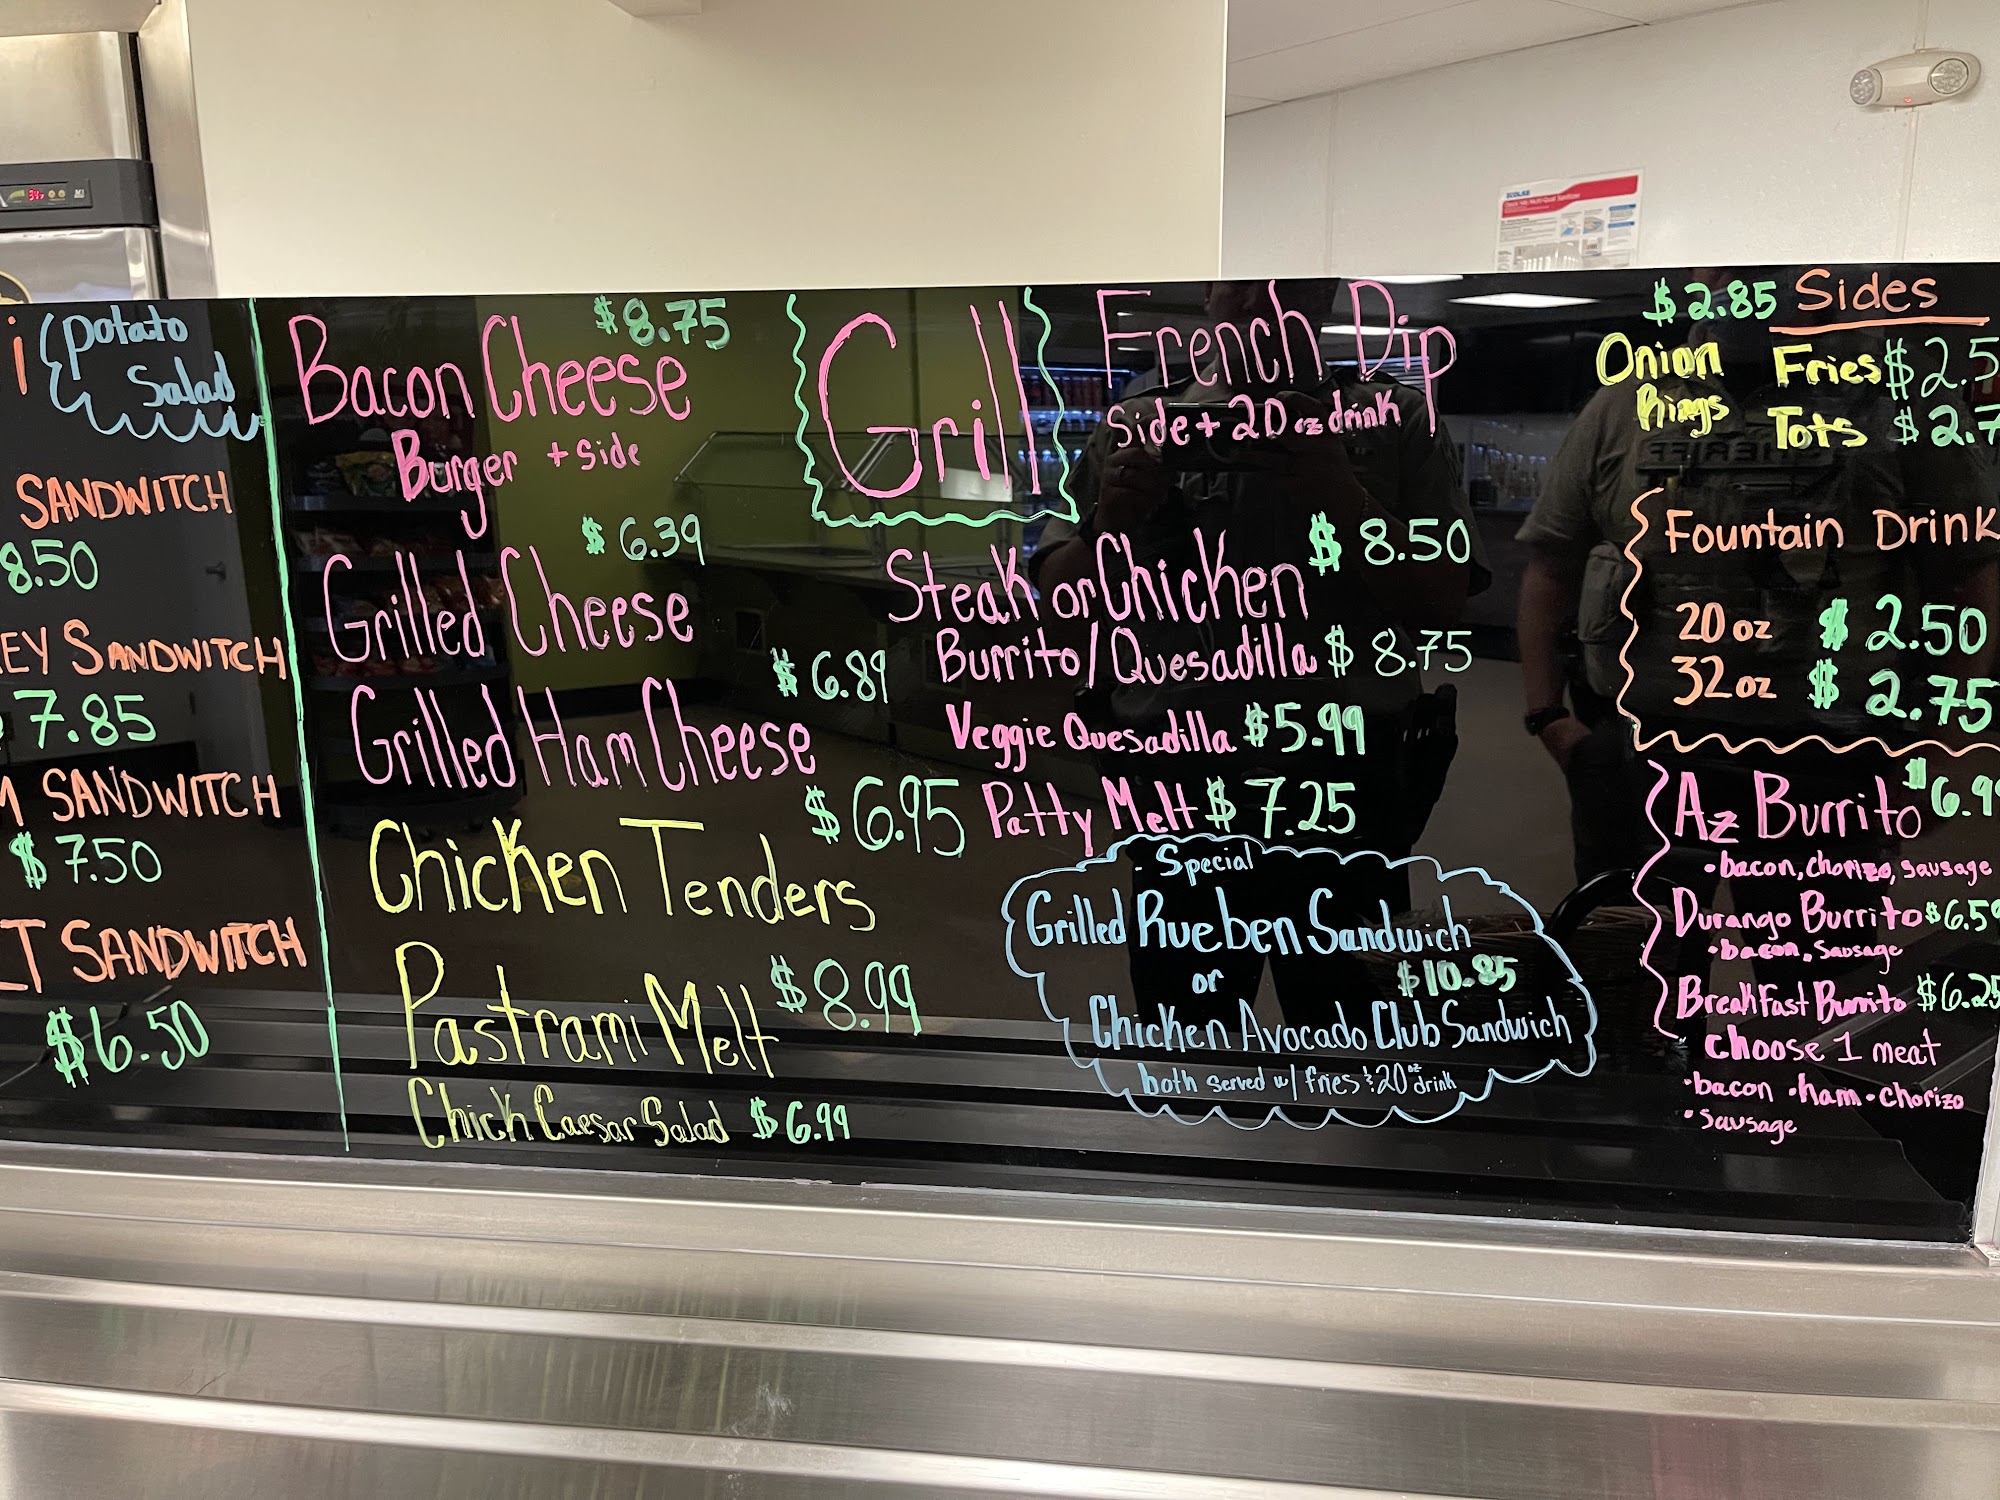 i
potato
Salad
SANDWITCH
8.50
EY SANDWITCH
7.85
M SANDWITCH
$ 7.50
LT SANDWITCH
$6.50
$8.75
Bacon Cheese
Burger + side
$ 6.39
Grilled Cheese
$ 6.89
Grilled Ham Cheese
$ 6.95
Chicken Tenders
Pastrami Melt $8.99
Chick Caesar Salad $6.99
Grill
French Dip
Side + 20 oz drink
Steak or Chicken $ 8.50
Burrito/Quesadilla $ 8.75
Veggie Quesadilla $5.99
Patty Melt $ 7.25
- Special
Grilled Rueben Sandwich
or $10.85
Chicken Avocado Club Sandwich
both served w/ fries & 20oz drink
$2.85 Sides
Onion
Rings
Fries $2.5
Tots $2.7
Fountain Drink
20 oz $ 2.50
32 oz $ 2.75
Az Burrito $6.9
•bacon, chorizo, sausage
Durango Burrito $6.59
•bacon, sausage
Breakfast Burrito $6.25
choose 1 meat
•bacon •ham •chorizo
•sausage
ECOLAB